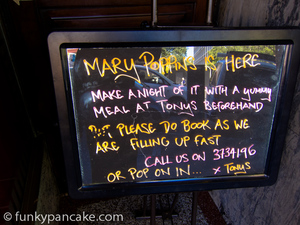 MARY POPPINS IS HERE
MAKE A NIGHT OF IT WITH A YUMMY
MEAL AT TONUS BEFOREHAND
PLEASE DO BOOK AS WE
ARE FILLING UP FAST
CALL US ON 3734196
OR POP ON IN... x TONUS
© funkypancake.com